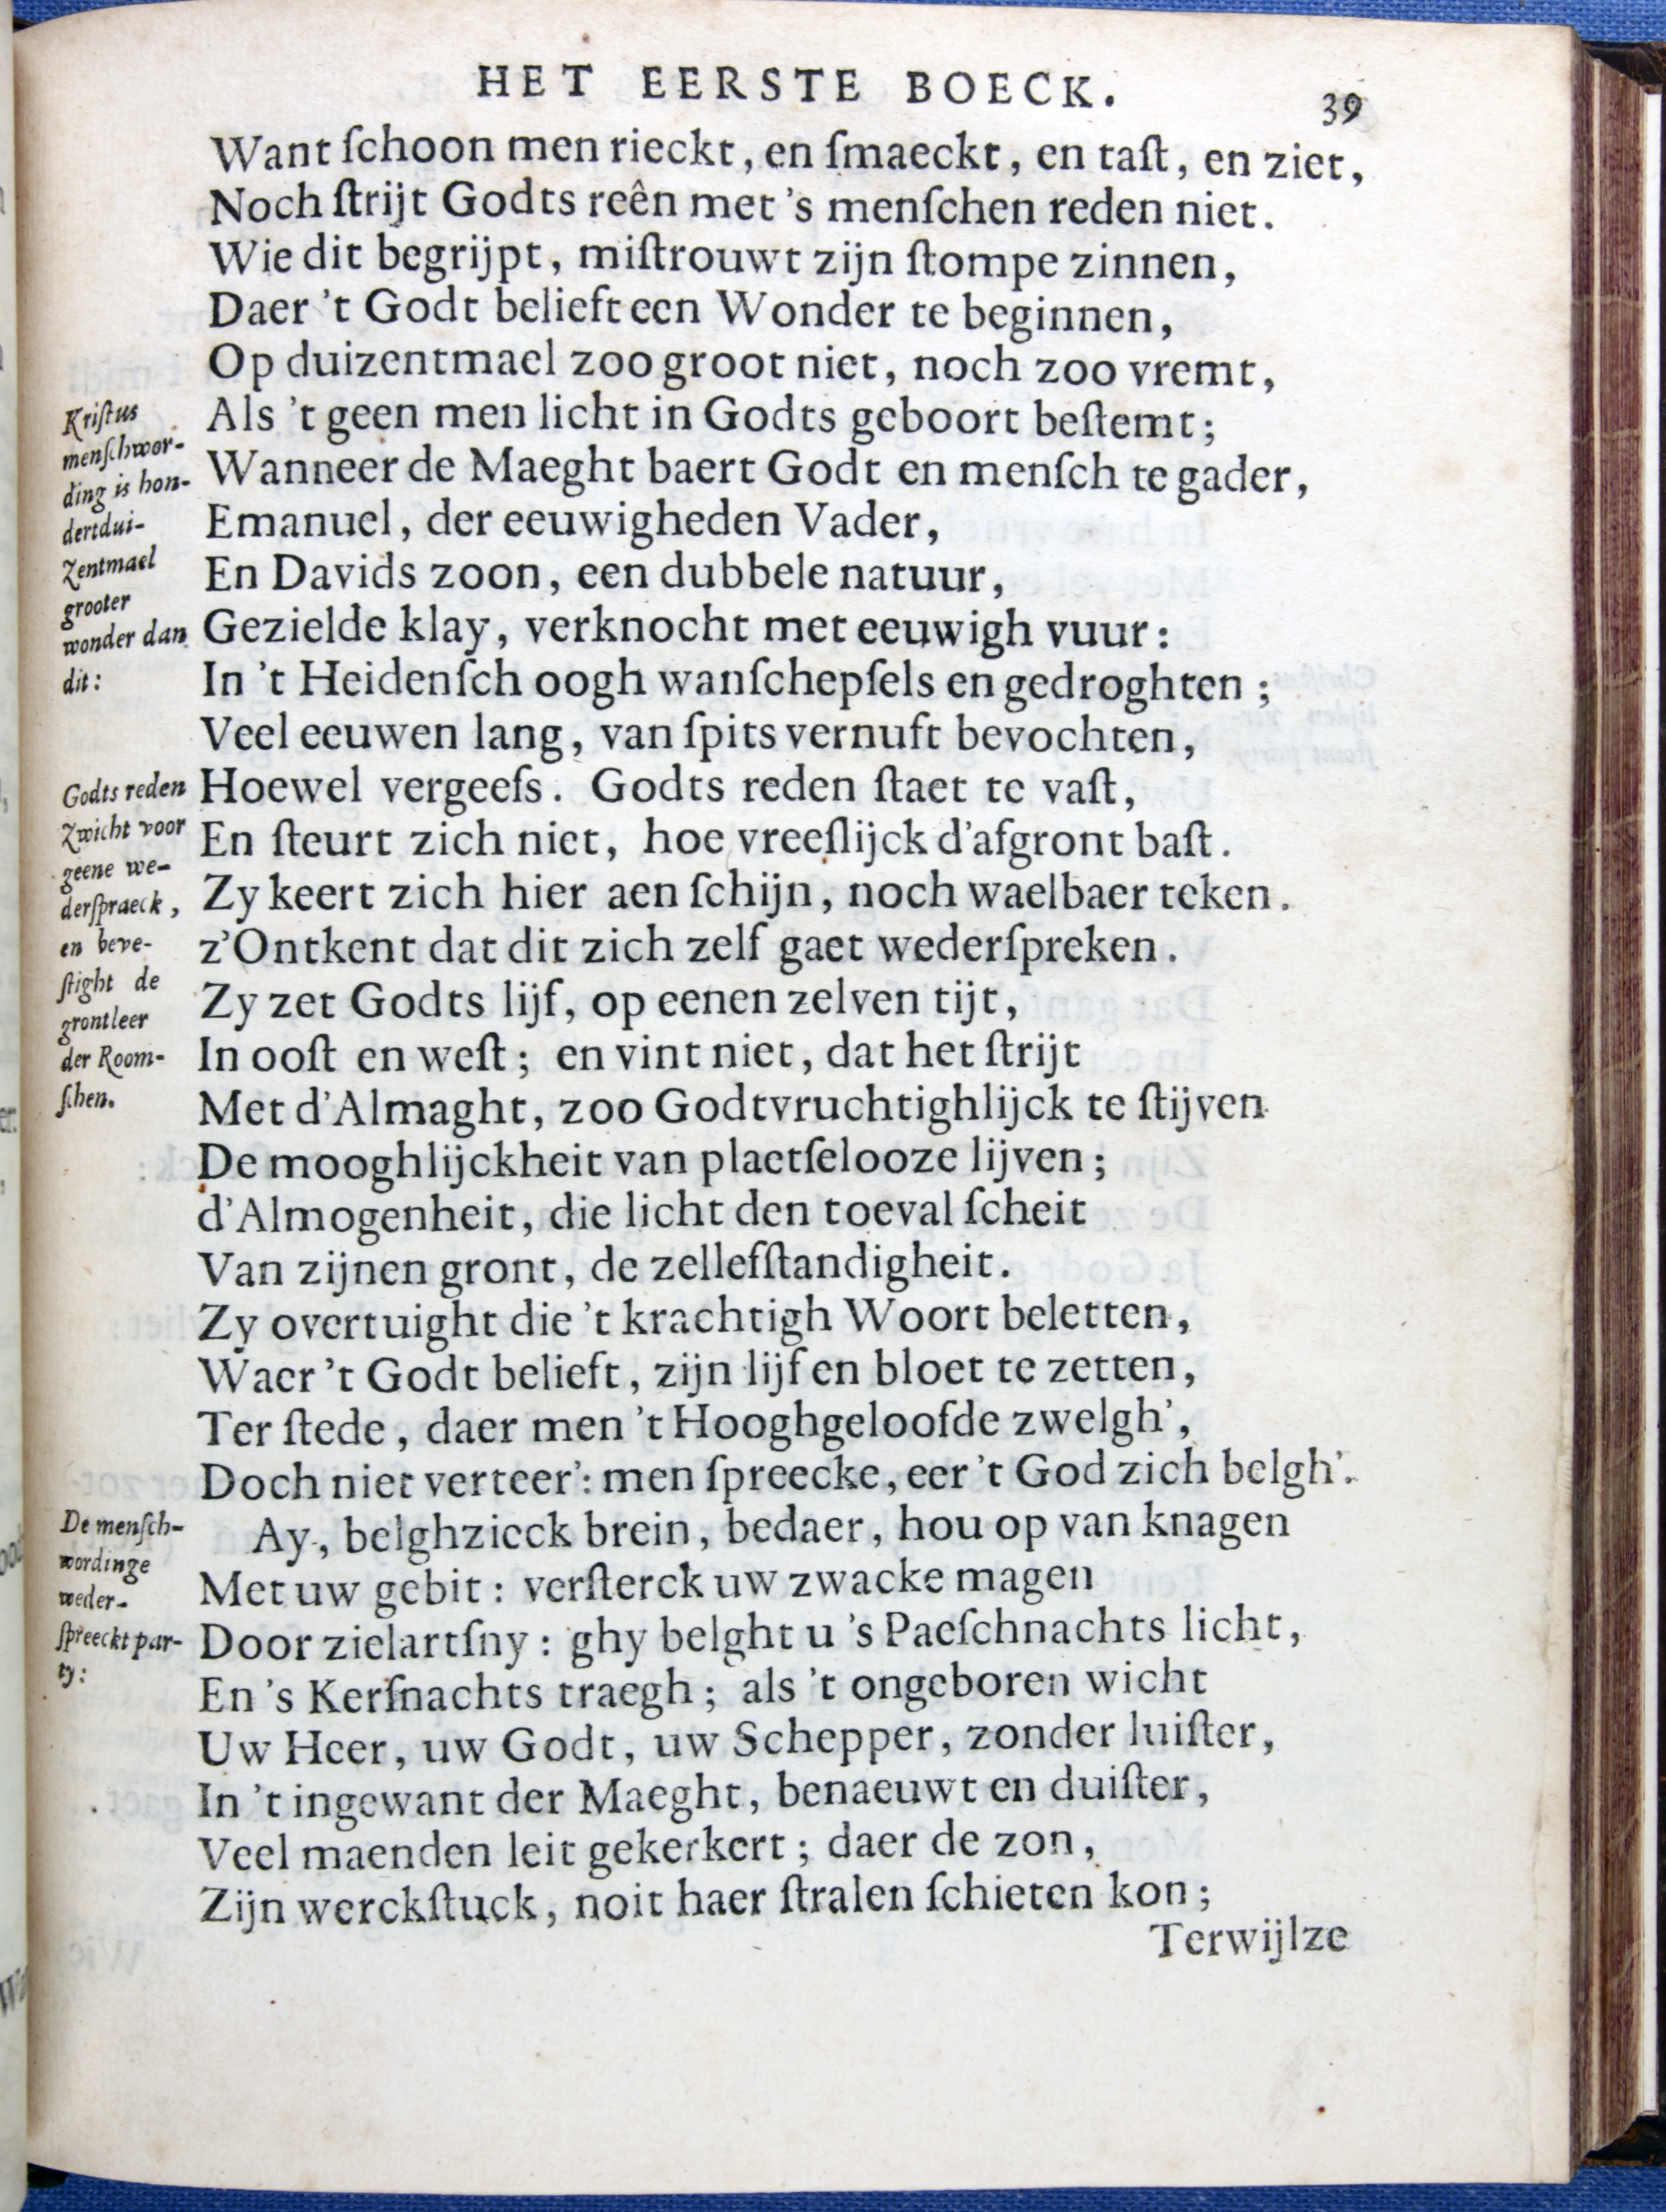 HET EERSTE BOECK.
39
Want ſchoon men rieckt, en ſmaeckt, en taſt, en ziet,
Noch ſtrijt Godts reên met 's menſchen reden niet.
Wie dit begrijpt, miſtrouwt zijn ſtompe zinnen,
Daer 't Godt belieft een Wonder te beginnen,
Op duizentmael zoo groot niet, noch zoo vremt,
Als 't geen men licht in Godts geboort beſtemt;
Wanneer de Maeght baert Godt en menſch te gader,
Emanuel, der eeuwigheden Vader,
En Davids zoon, een dubbele natuur,
Gezielde klay, verknocht met eeuwigh vuur:
In 't Heidenſch oogh wanſchepſels en gedroghten;
Veel eeuwen lang, van ſpits vernuft bevochten,
Hoewel vergeefs. Godts reden ſtaet te vaſt,
En ſteurt zich niet, hoe vreeſlijck d'afgront baſt.
Zy keert zich hier aen ſchijn, noch waelbaer teken.
z'Ontkent dat dit zich zelf gaet wederſpreken.
Zy zet Godts lijf, op eenen zelven tijt,
In ooſt en weſt; en vint niet, dat het ſtrijt
Met d'Almaght, zoo Godtvruchtighlijck te ſtijven
De mooghlijckheit van plaetſelooze lijven;
d'Almogenheit, die licht den toeval ſcheit
Van zijnen gront, de zellefſtandigheit.
Zy overtuight die 't krachtigh Woort beletten,
Waer 't Godt belieft, zijn lijf en bloet te zetten,
Ter ſtede, daer men 't Hooghgeloofde zwelgh',
Doch niet verteer': men ſpreecke, eer 't God zich belgh'.
Ay, belghzieck brein, bedaer, hou op van knagen
Met uw gebit: verſterck uw zwacke magen
Door zielartſny: ghy belght u 's Paeſchnachts licht,
En 's Kerſnachts traegh; als 't ongeboren wicht
Uw Heer, uw Godt, uw Schepper, zonder luiſter,
In 't ingewant der Maeght, benaeuwt en duiſter,
Veel maenden leit gekerkert; daer de zon,
Zijn werckſtuck, noit haer ſtralen ſchieten kon;
Terwijlze
Kriſtus
menſchwor-
ding is hon-
dertdui-
zentmael
grooter
wonder dan
dit:
Godts reden
zwicht voor
geene we-
derſpraeck,
en beve-
ſtight de
grontleer
der Room-
ſchen.
De menſch-
wordinge
weder-
ſpreeckt par-
ty: